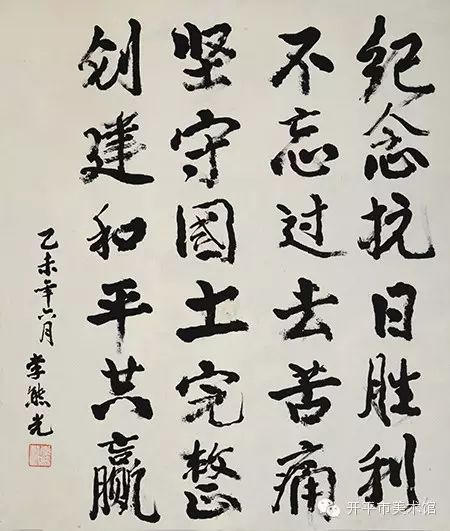 纪念抗日胜利
不忘过去苦痛
坚守國土完整
创建和平共赢
乙未年六月
李熊光
开平市美术馆